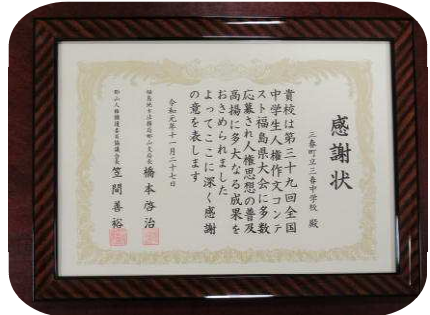 感謝状
三春町立三春中学校 殿
貴校は第三十九回全国
中学生人権作文コンテ
スト福島県大会に多数
応募され人権思想の普及
高揚に多大なる成果を
おさめられました
よってここに深く感謝
の意を表します
令和元年十一月二十七日
福島地方法務局郡山支局長 橋本啓治
郡山人権擁護委員協議会長 笠間善裕